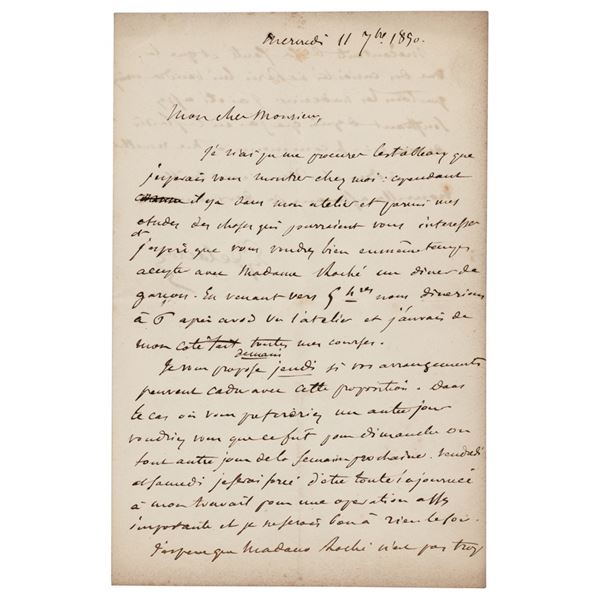 Mercredi 11 7bre 1850.
Mon cher Monsieur,
Je n'ai pu me procurer les tableaux que
j'espérais vous montrer chez moi : cependant
il y a dans mon atelier et parmi mes
études des choses qui pourraient vous interesser
et j'espère que vous voudrez bien en même temps
accepter avec Madame Roché un diner de
garçon. En venant vers 5 hres nous dinerions
à 6 après avoir vu l'atelier et j'aurais de
mon coté fait toutes mes courses.
Je vous propose demain jeudi si vos arrangements
peuvent cadrer avec cette proposition. Dans
le cas où vous prefereriez un autre jour
voudriez vous que ce fût pour dimanche ou
tout autre jour de la semaine prochaine. Vendredi
et samedi je serai forcé d'être toute la journée
à mon travail pour une operation assez
importante et je ne serais bon à rien le soir.
J'espère que Madame Roché n'est pas trop